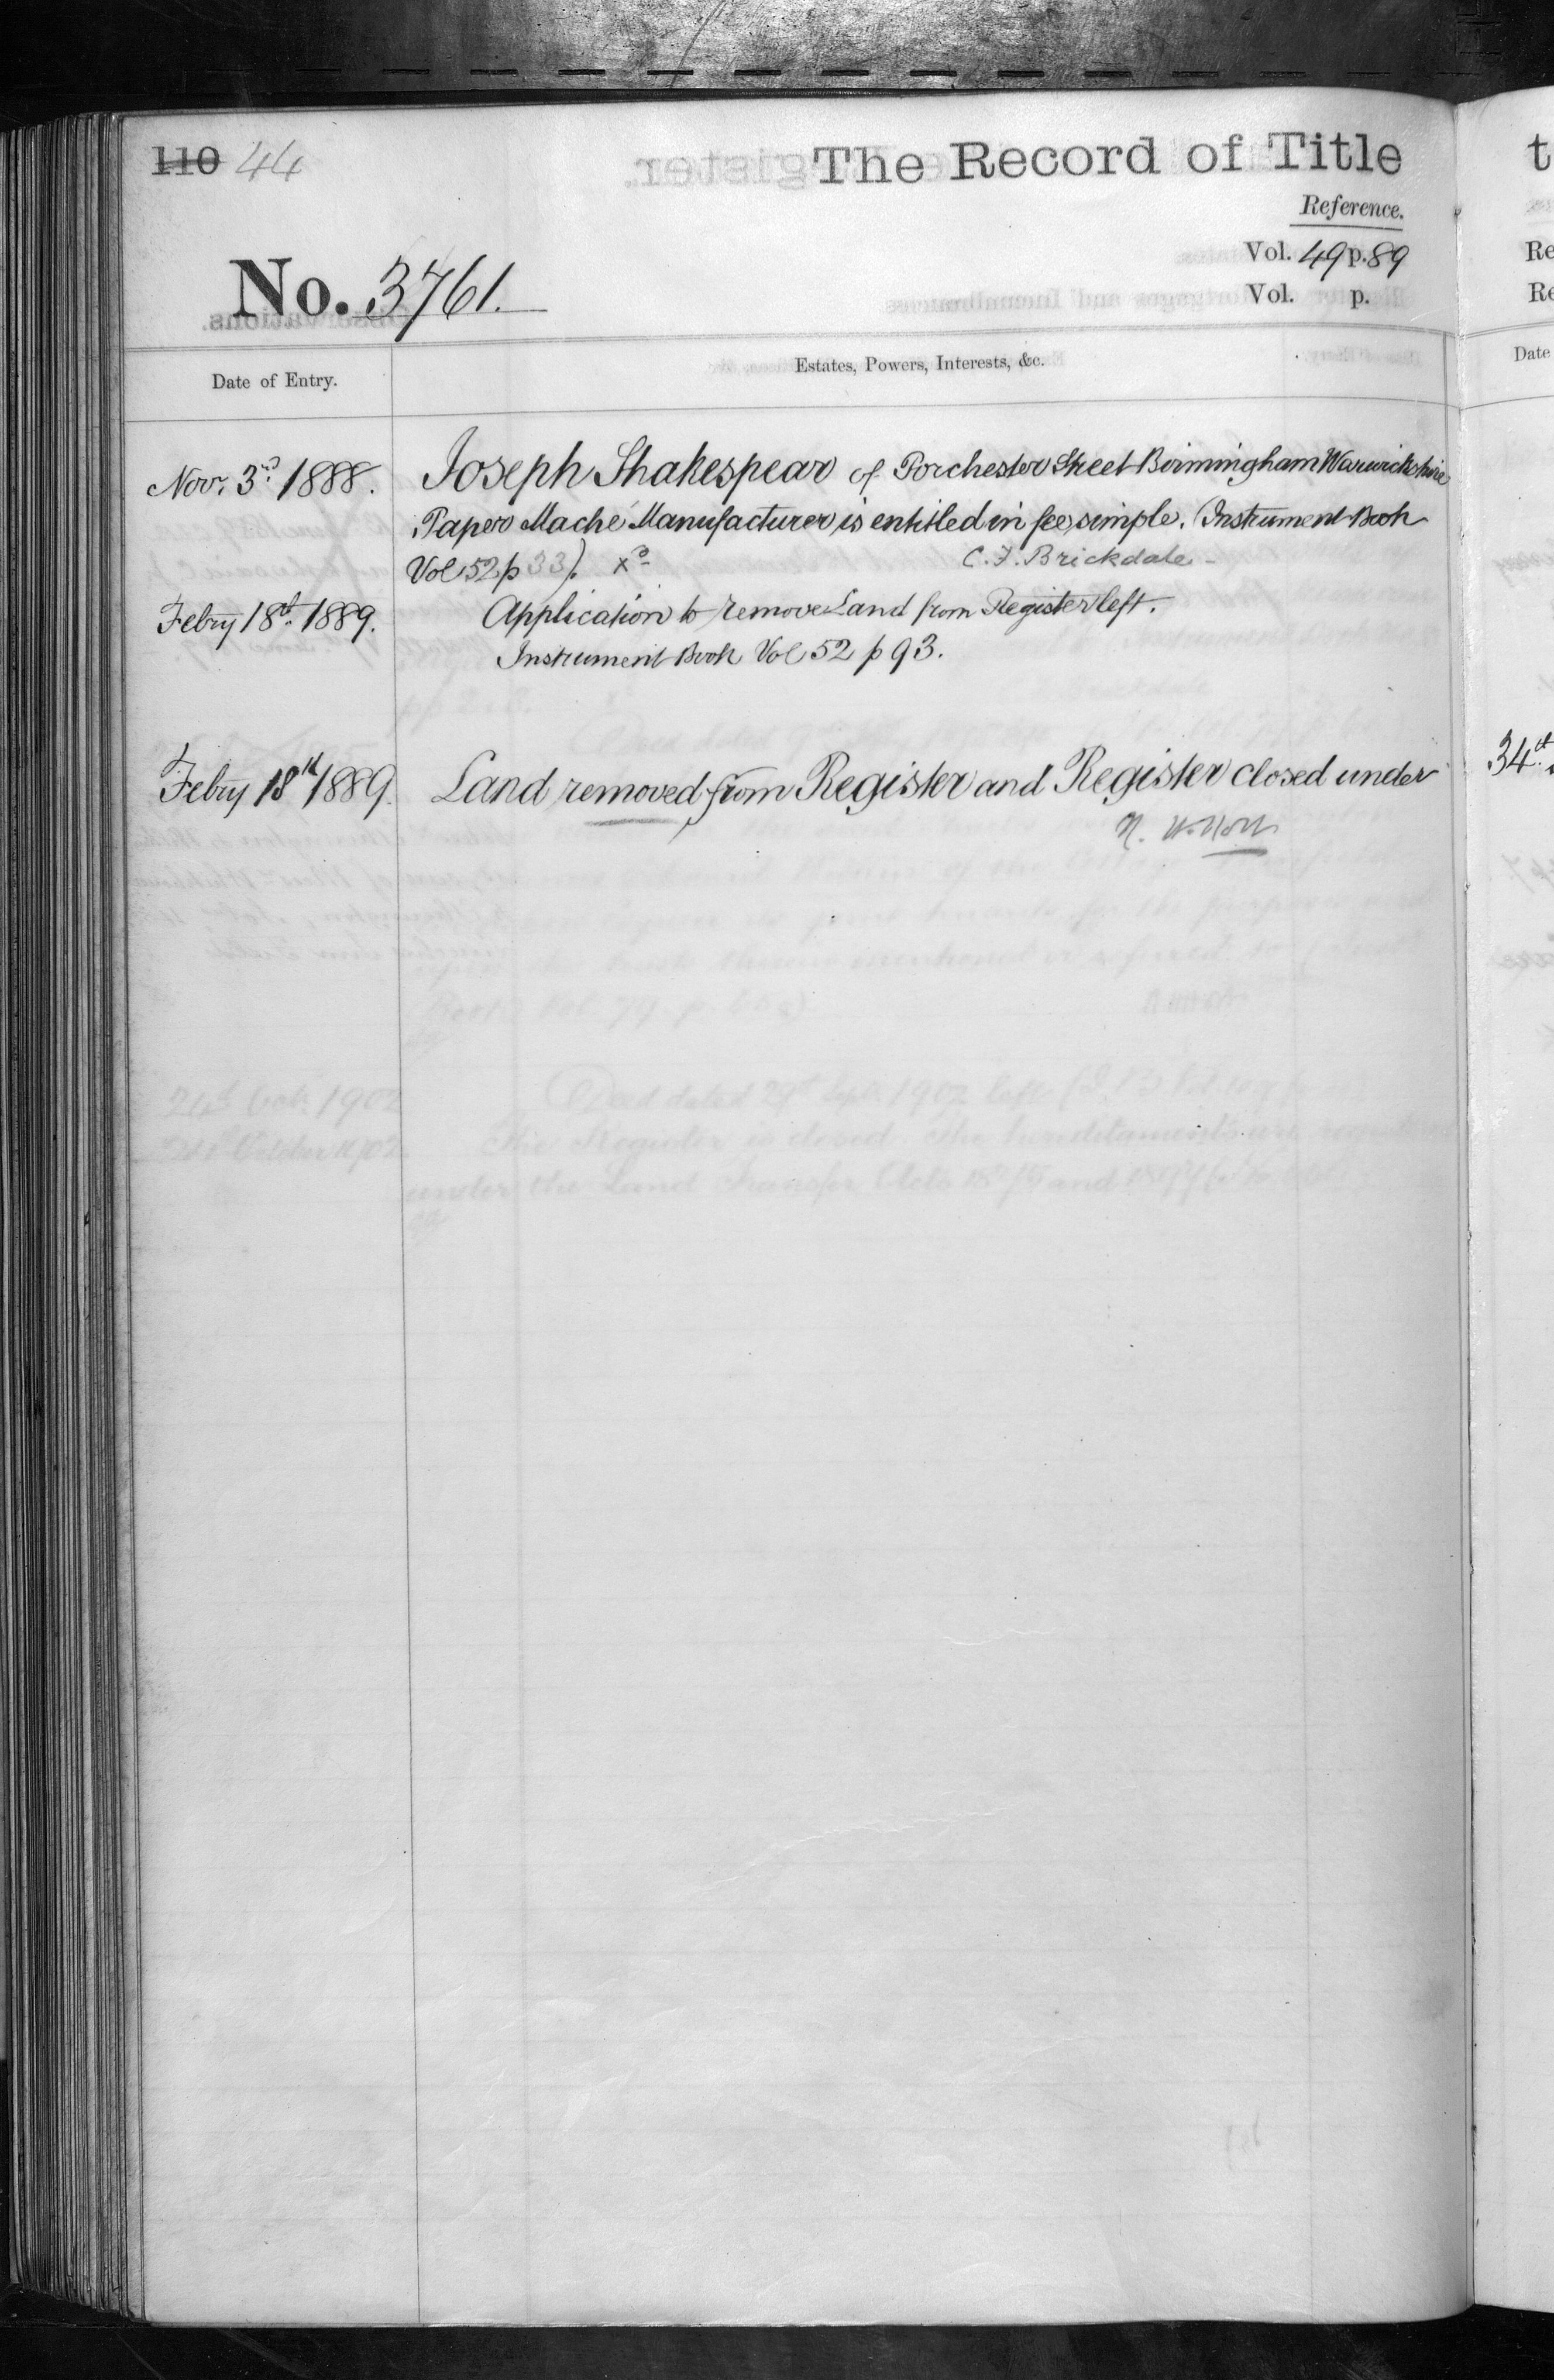 110 44
The Record of Title
Reference.
Vol. 49 p. 89
Vol. p.
No. 3761.
Date of Entry.
Estates, Powers, Interests, &c.
Novr. 3rd 1888.
Joseph Shakespear of Porchester Street Birmingham Warwickshire
Paper Maché Manufacturer is entitled in fee simple. (Instrument Book
Vol 52 p 33).
C. F. Brickdale
Febry 18th 1889.
Application to remove Land from Register left.
Instrument Book Vol 52 p 93.
Febry 18th 1889.
Land removed from Register and Register closed under
t
Re
Re
Date
34